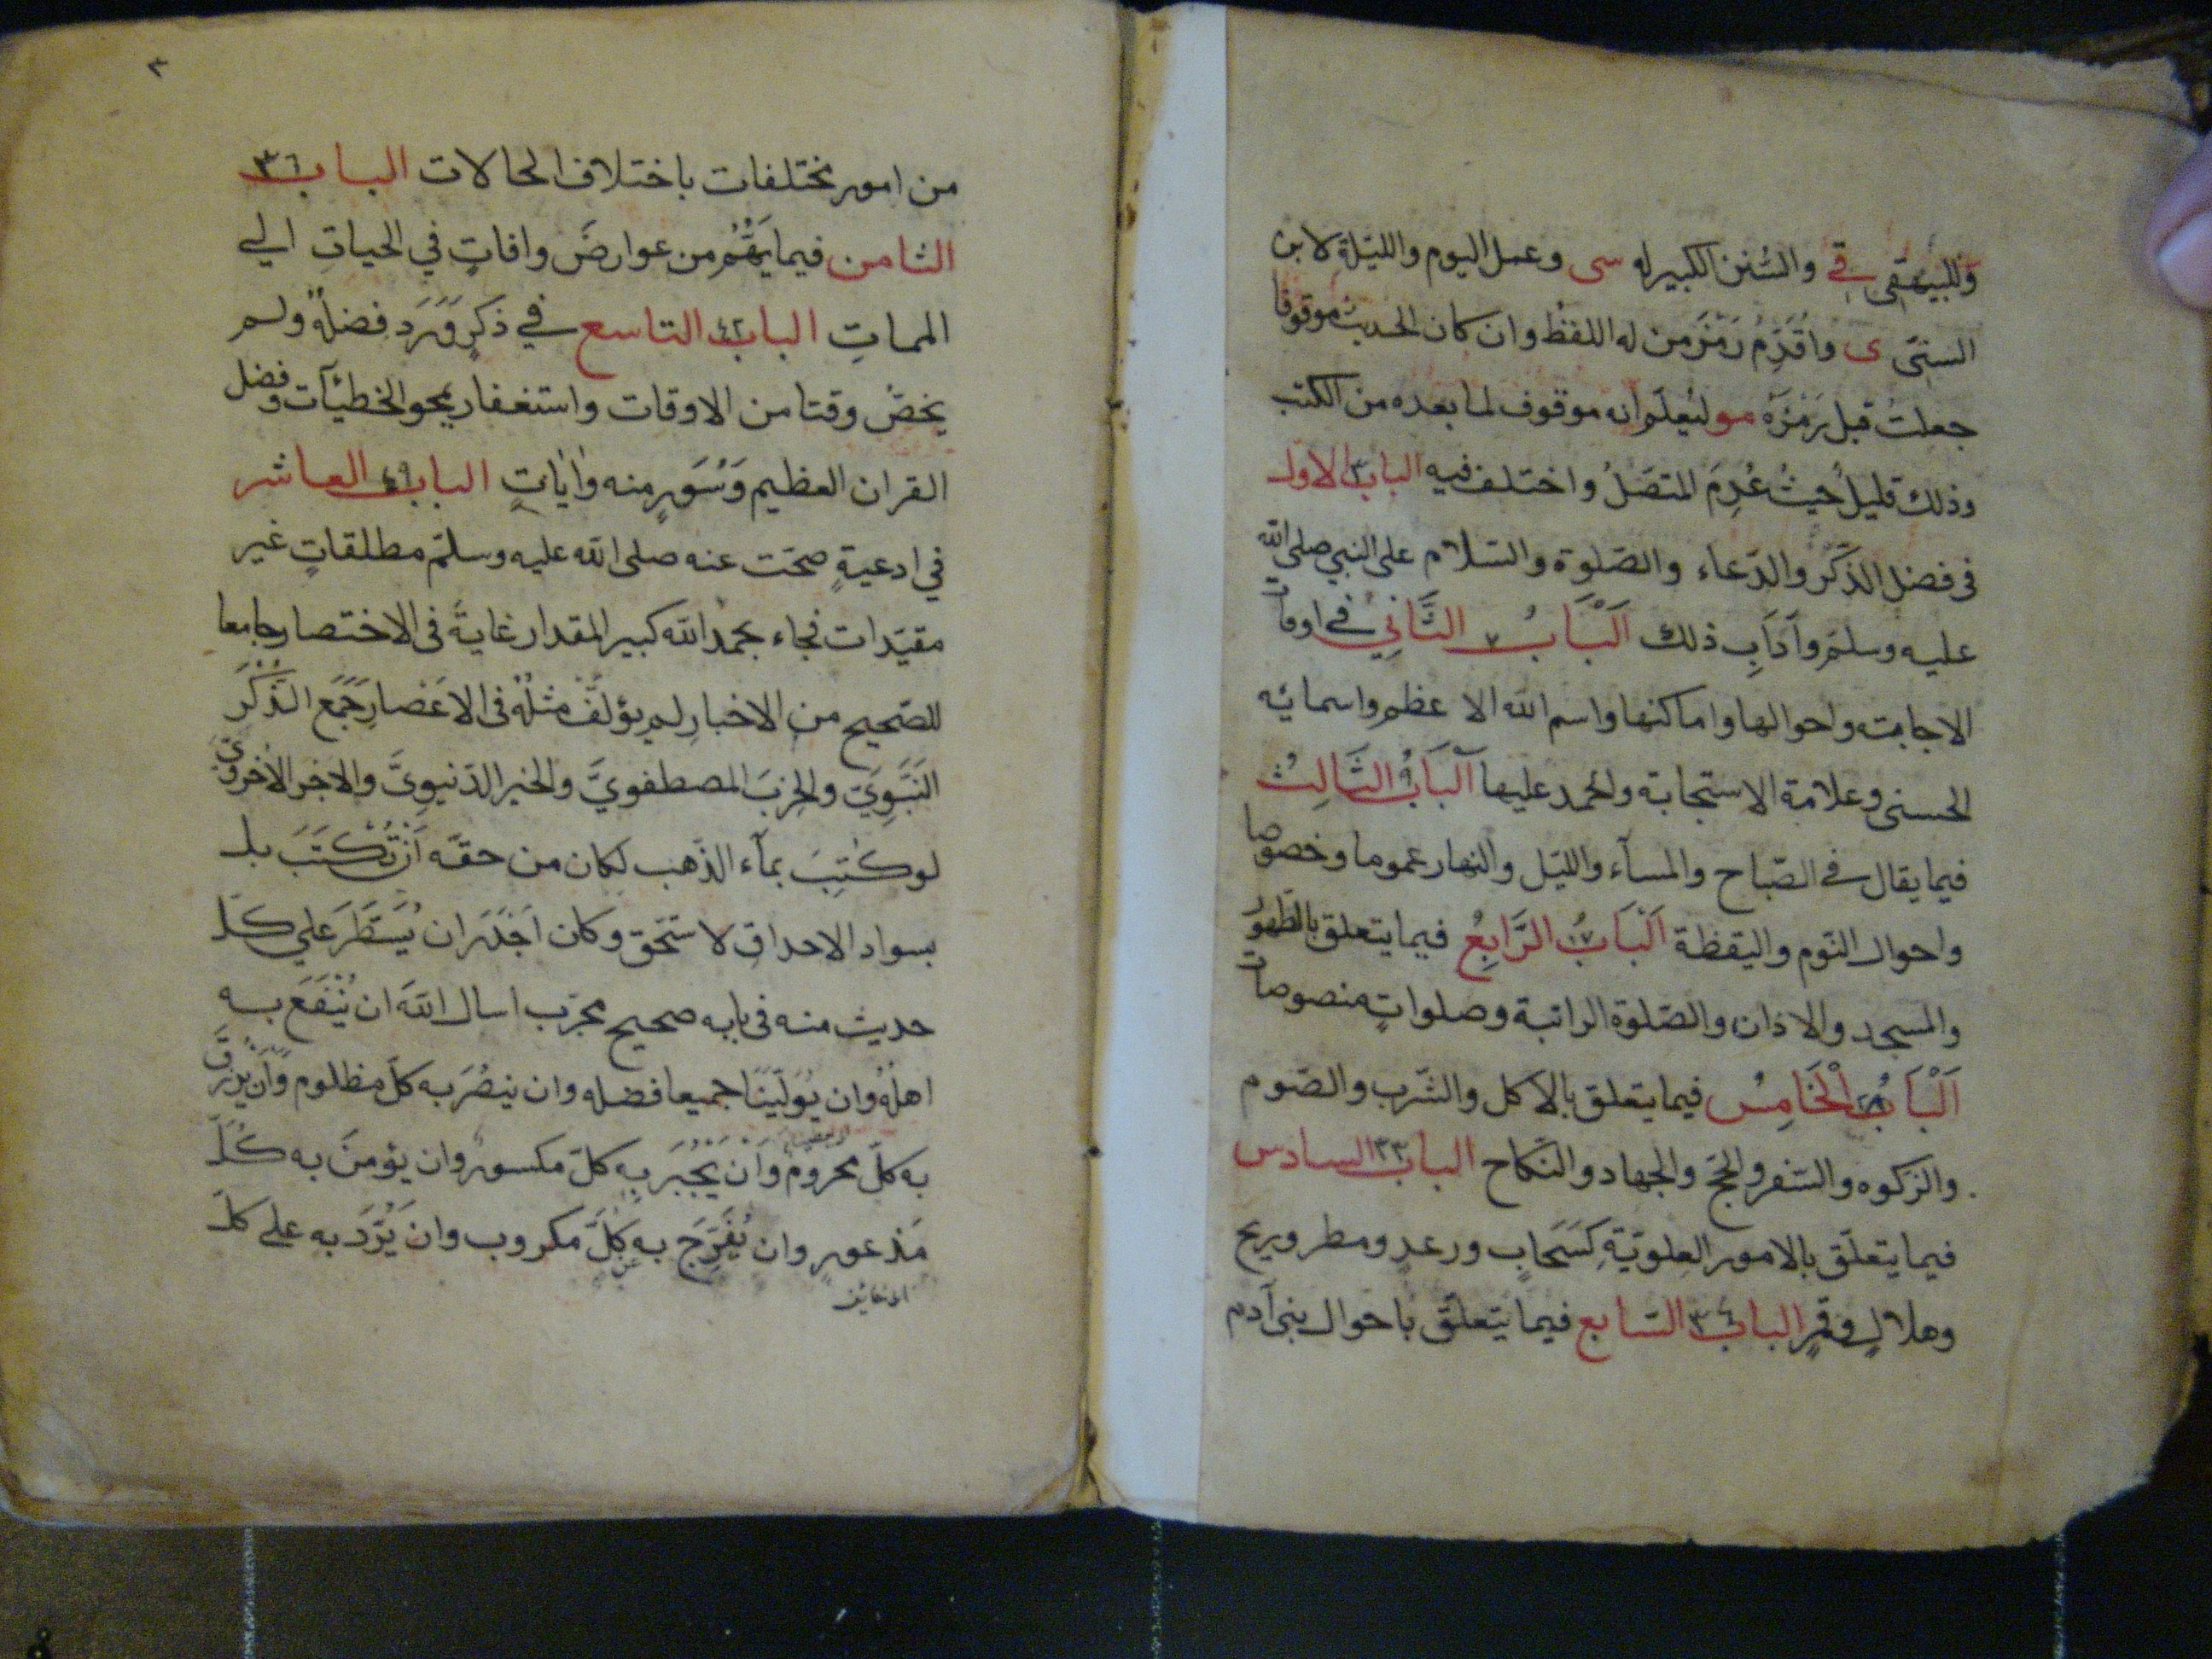 وللبيهقى قى والسنن الكبير له سى وعمل اليوم والليلة لابن
السنى ى واُقَدِّمُ رَمْزَ من له اللفظ وان كان الحديث موقوفا
جعلتُ قبل رَمْزَهِ مو ليُعلَم انه موقوف لما بعده من الكتب
وذلك قليلٌ حيثُ عُدِمَ المتصَلُ واختلف فيه الباب ٣ الاول
فى فضل الذّكْر والدّعاء والصّلوة والسّلام على النبى صلى الله
عليه وسلم وآدَابِ ذلك اَلْبَابُ ٧ الثَّانِي فى اوقات
الاجابته واحوالها واماكنها واسم الله الا عظم واسمائه
الحسنى وعلامة الاستجابة والحمد عليها اَلْبَابُ ٩ الثَّالِثُ
فيما يقال فى الصّباح والمسآء والليّل والنهار عموما وخصوصا
واحوال النّوم واليقظة اَلْبَابُ ١٧ الرَّابِعُ فيما يتعلق بالطهور
والمسجد والاذان والصّلوة الراتبة وصلواتٍ منصوصات
اَلْبَابُ ٢٨ الْخَامِسُ فيما يتعلق بالاكل والشّرب والصّوم
والزكوه والسّفر والحجّ والجهاد والنّكاح الباب ٣٣ السادس
فيما يتعلّق بالامور العلويّةِ كَسَحَابٍ ورعدٍ ومطر وريح
وهلالٍ وقمرٍ الباب ٣٤ السّابع فيما يَتعلّق باحوال بنى آدم
٣
من امور مختلفات باختلاف الحالات الباب ٣٦
الثامن فيما يَهُمُّ من عوارضَ وافاتٍ في الحياتِ الي
المماتِ الباب ٤٢ التاسع في ذَكرٍ وَرَدَ فضلهُ ولم
يخصّ وقتا من الاوقات واستغفار يمحو الخطئٰات وفضل
القران العظيم وَسُوَرٍ منه واٰياتٍ الباب ٤٩ العاشر
في ادعيةٍ صحّت عنه صلى الله عليه وسلّم مطلقاتٍ غير
مقيّدات فجاء بحمد الله كبير المقدار غايةً فى الاختصار جامعا
للصّحيح من الاخبارِ لم يؤلَّف مثلُهُ فى الاعْصارِ جَمَعَ الذِّكْرَ
النَبَّوِيَّ والحِزبَ المصطفويَّ والخير الدّنيوىَّ والاجر الاخروىّ
لو كُتِبَ بمآء الذّهب لكان من حقّه اَنْ تُكْتَبَ بل
بسواد الاحداق لاستحق وكان اَجْدَرَ ان يُسَطَّرَ علي كلّ
حديث منه فى بابه صحيح مجرّب اسال اللهَ ان يُنْفَعَ به
اهلَهُ وان يُوَلّيَنَا جميعا فضله وان ينصُرَ به كلّ مظلوم وَاَنْ يرزقَ
به كلّ محروم وَاَنْ يَجْبُرَ به كلّ مكسور وان يؤمنَ به كُلّ
مَذعورٍ وان يُفَرِّجَ به كلَّ مكروب وان يَرُدَّ به على كل